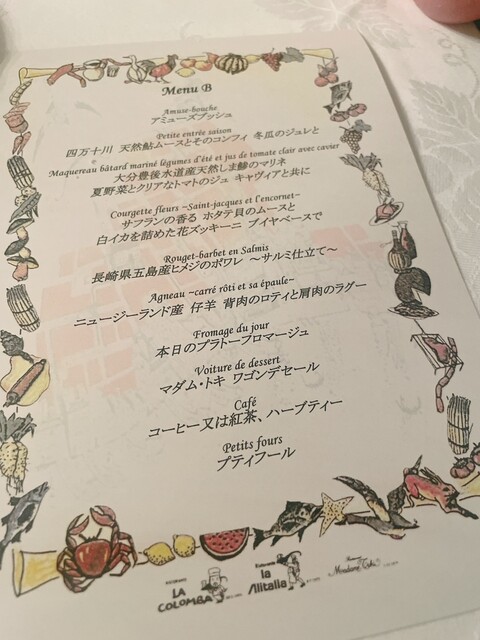 Menu B
Amuse-bouche
アミューズブッシュ
Petite entrée saison
四万十川 天然鮎ムースとそのコンフィ 冬瓜のジュレと
Maquereau bâtard mariné légumes d'été et jus de tomate clair avec caviar
大分豊後水道産天然しま鯵のマリネ
夏野菜とクリアなトマトのジュ キャヴィアと共に
Courgette fleurs ~Saint-jacques et l'encornet~
サフランの香る ホタテ貝のムースと
白イカを詰めた花ズッキーニ ブイヤベースで
Rouget-barbet en Salmis
長崎県五島産ヒメジのポワレ ～サルミ仕立て～
Agneau ~carré rôti et sa épaule~
ニュージーランド産 仔羊 背肉のロティと肩肉のラグー
Fromage du jour
本日のプラトーフロマージュ
Voiture de dessert
マダム・トキ ワゴンデセール
Café
コーヒー又は紅茶、ハーブティー
Petits fours
プティフール
LA COLOMBA
la Alitalia
Madame Toki